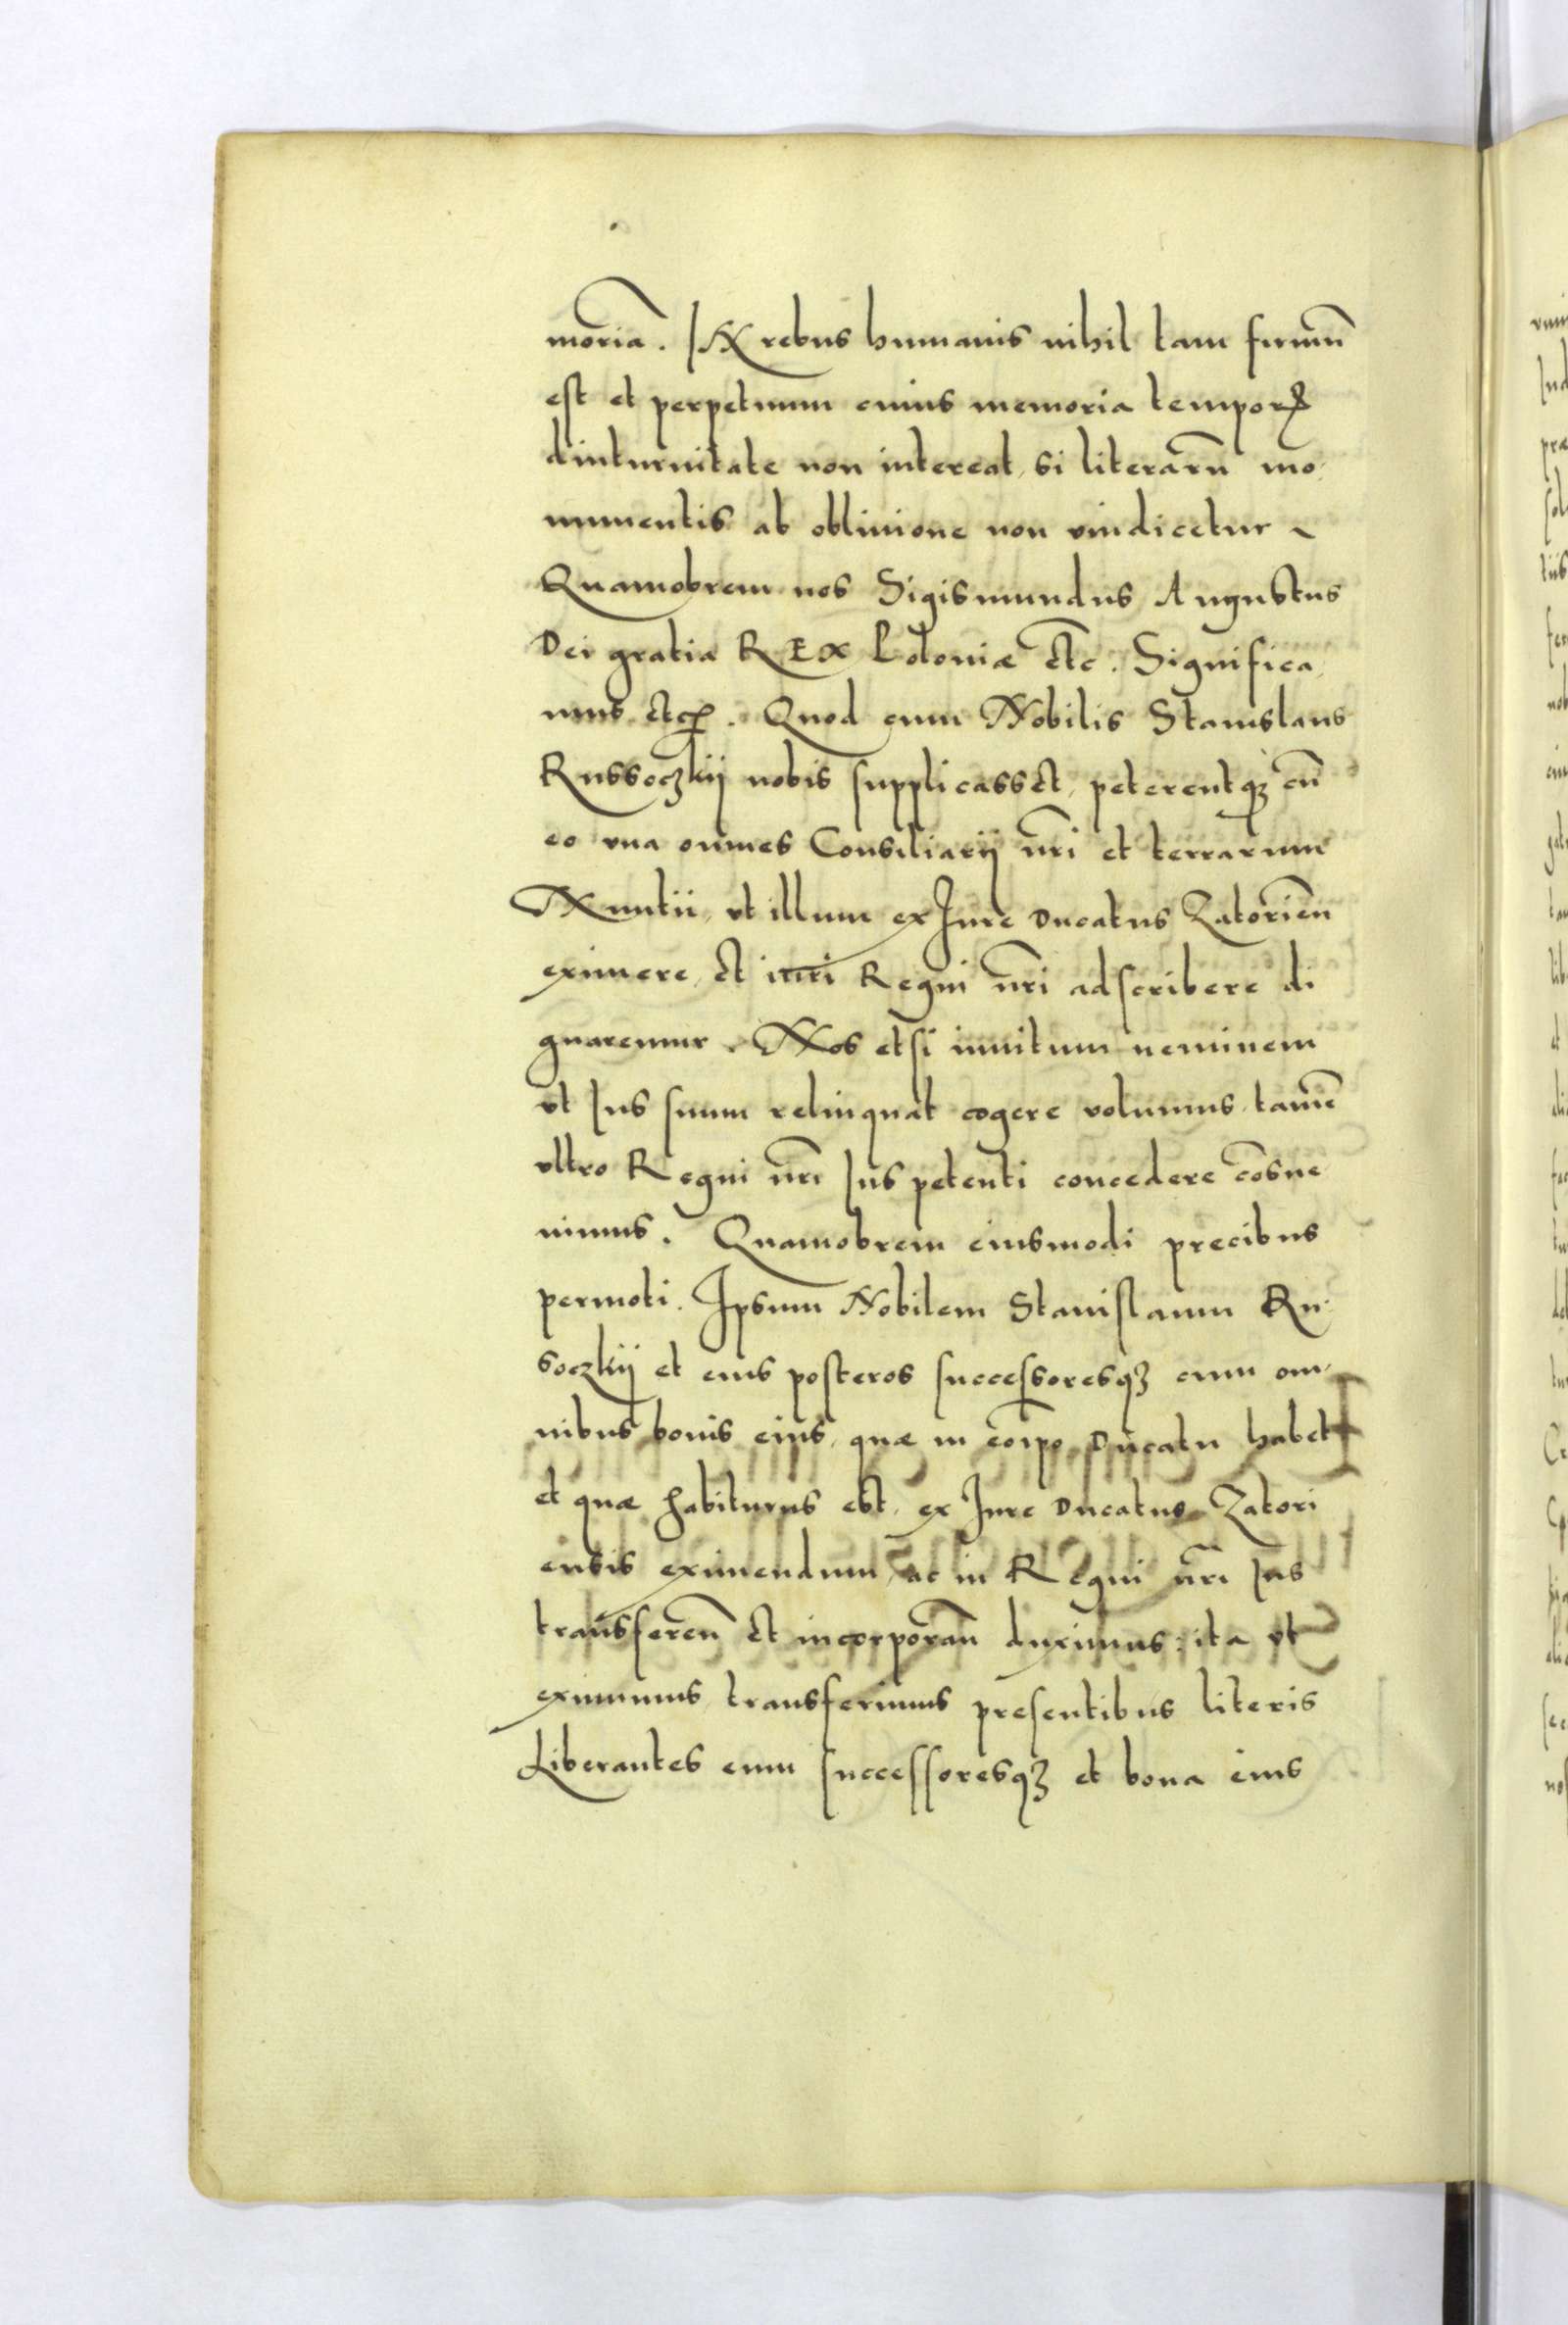 moriā. IN rebus humanis nihil tam firmū
est et perpetuum cuius memoria temporꝝ
diuturnitate non intereat, si literarū mo
numentis ab obliuione non vindicetur
Quamobrem nos Sigismundus Augustus
Dei gratia REX Poloniæ etc. Significa
mus etc. Quod cum Nobilis Stanislaus
Russoczkij nobis supplicasset, peterentqꝫ cū
eo vna omnes Consiliarij nrī et terrarum
Nuntii, vt illum ex Iure Ducatus Zatoriēn
eximere, et iuri Regni nrī adscribere di
gnaremur. Nos etsi inuitum neminem
vt Ius suum relinquat cogere volumus, tamē
vltro Regni nrī Ius petenti concedere cōsue
uimus. Quamobrem eiusmodi precibus
permoti. Ipsum Nobilem Stanislaum Ru
soczkij et eius posteros successoresqꝫ cum om
nibus bonis eius, quæ in eōrpo Ducatu habet
et quæ habiturus est, ex Iure Ducatus Zatori
ensis eximendum, ac in Regni nrī Ius
transferēn et incorporān duximus: ita vt
eximimus transferimus presentibus literis
Liberantes eum successoresqꝫ et bona eius